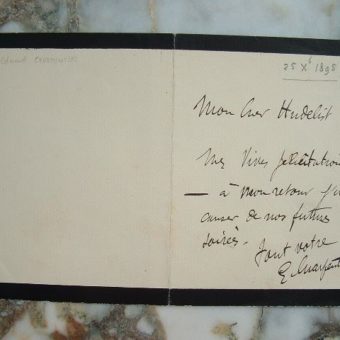 25 Xᵇ 1895
Mon Cher Hudelist
Mes Vives félicitation
— à mon retour j'i
causer de nos futures
soirées -
Tout votre
G. Charpent